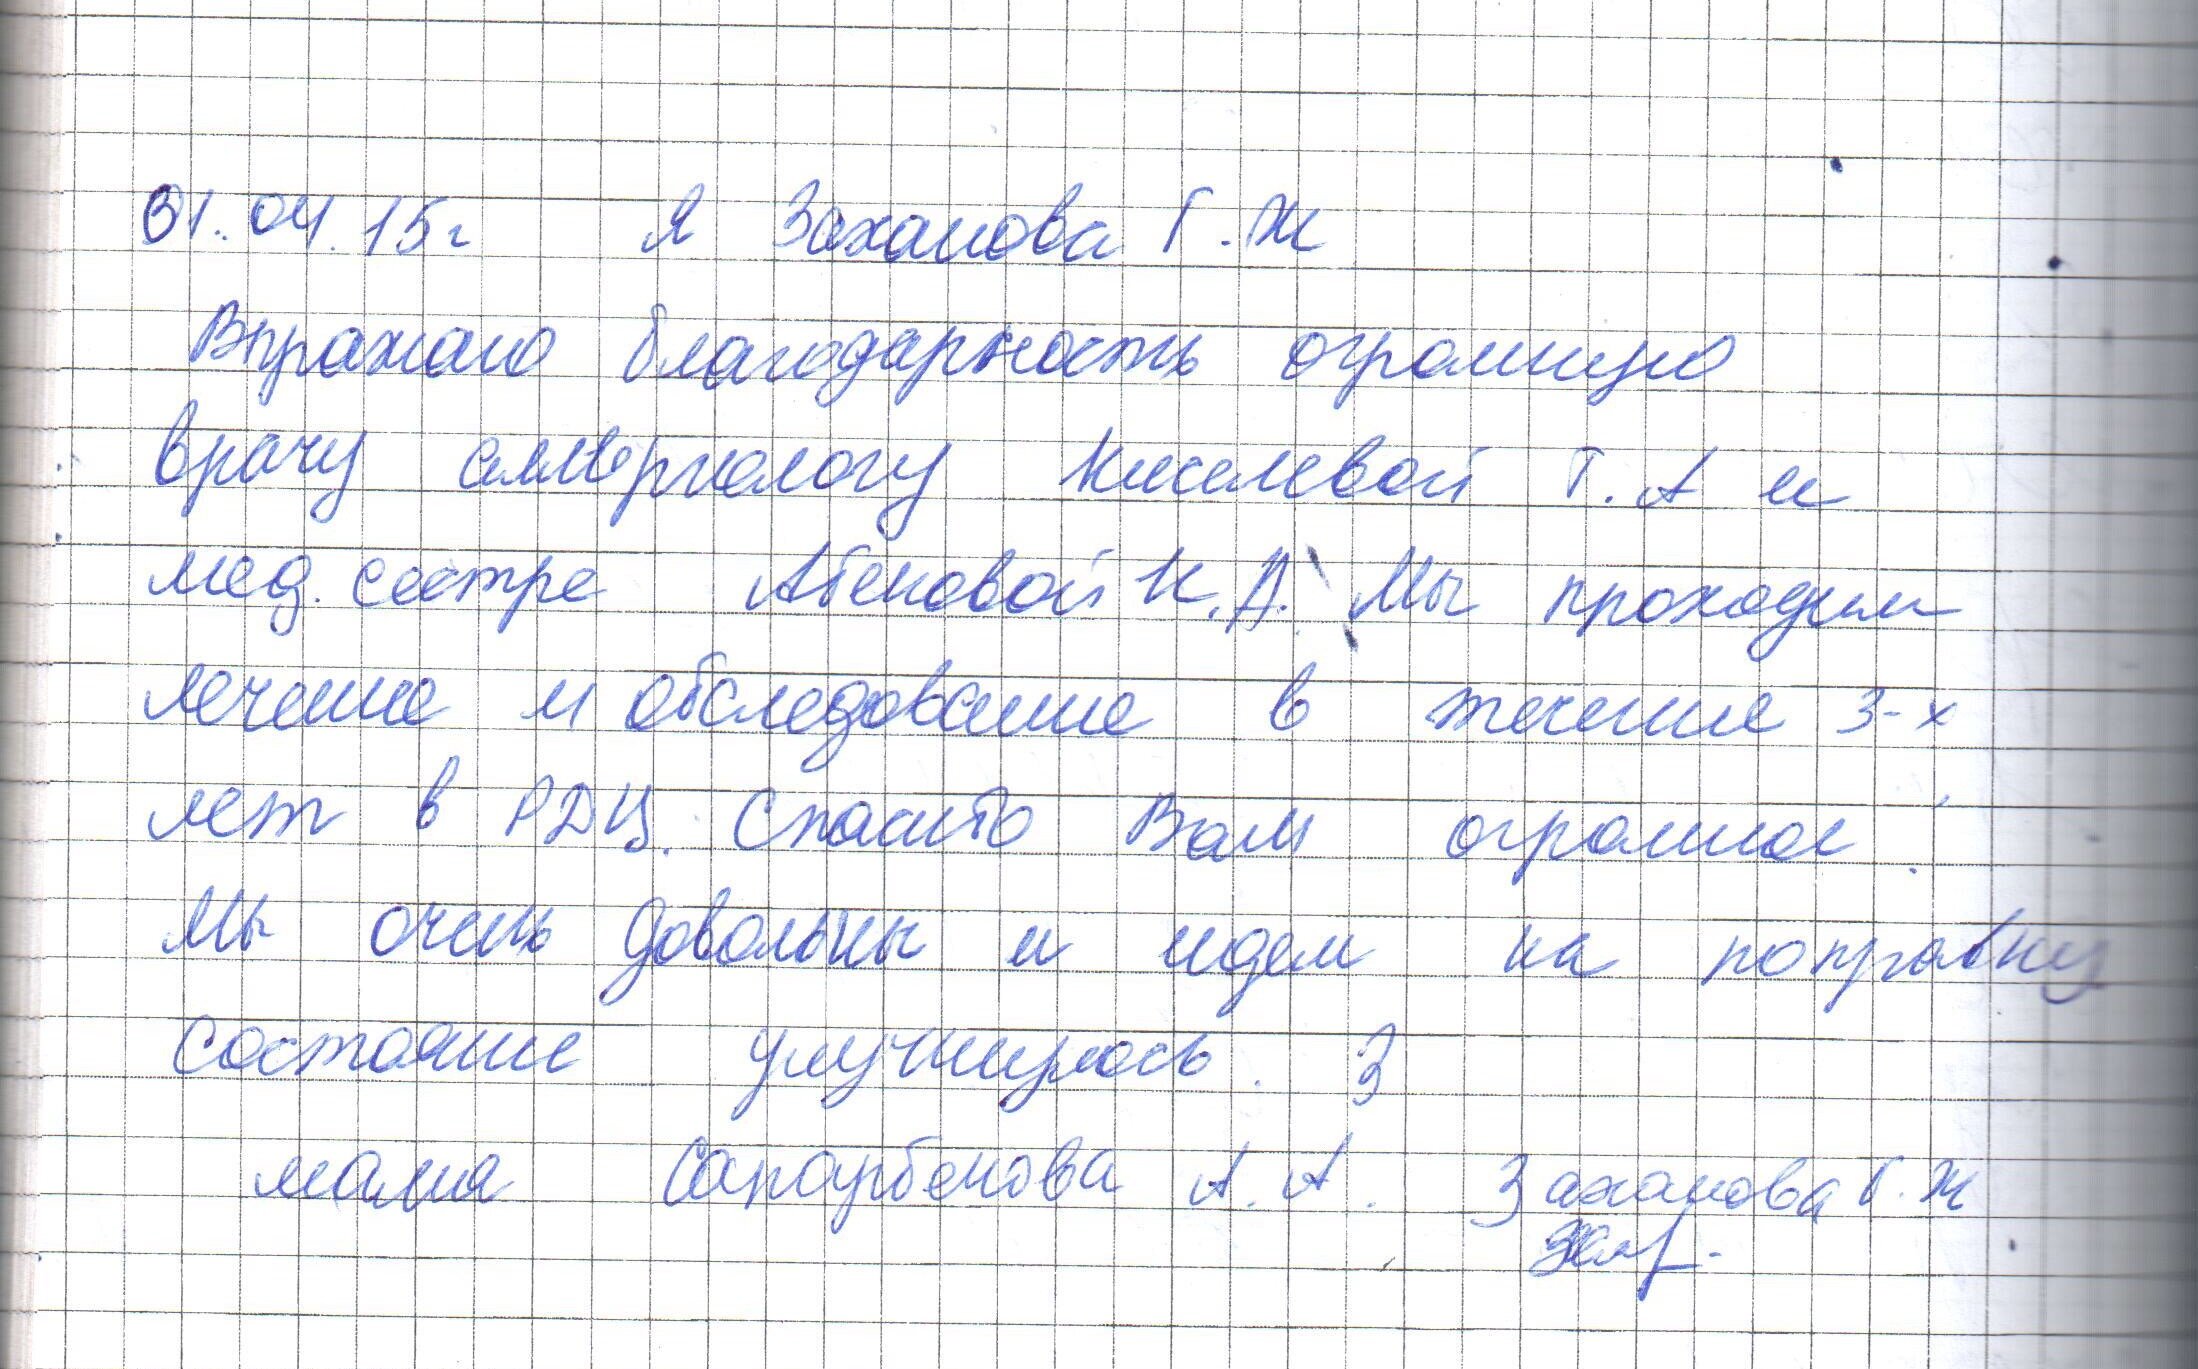 01.04.15г Я Заханова Г.Ж
Выражаю благодарность огромную
врачу аллергологу Киселевой Т.А и
мед. сестре Абеновой К.А. Мы проходим
лечение и обследование в течение 3-х
лет в РДЦ. Спасибо Вам огромное.
Мы очень довольны и идем на поправку
состояние улучшилось. З
мама Сапарбекова А.А. Заханова Г.Ж